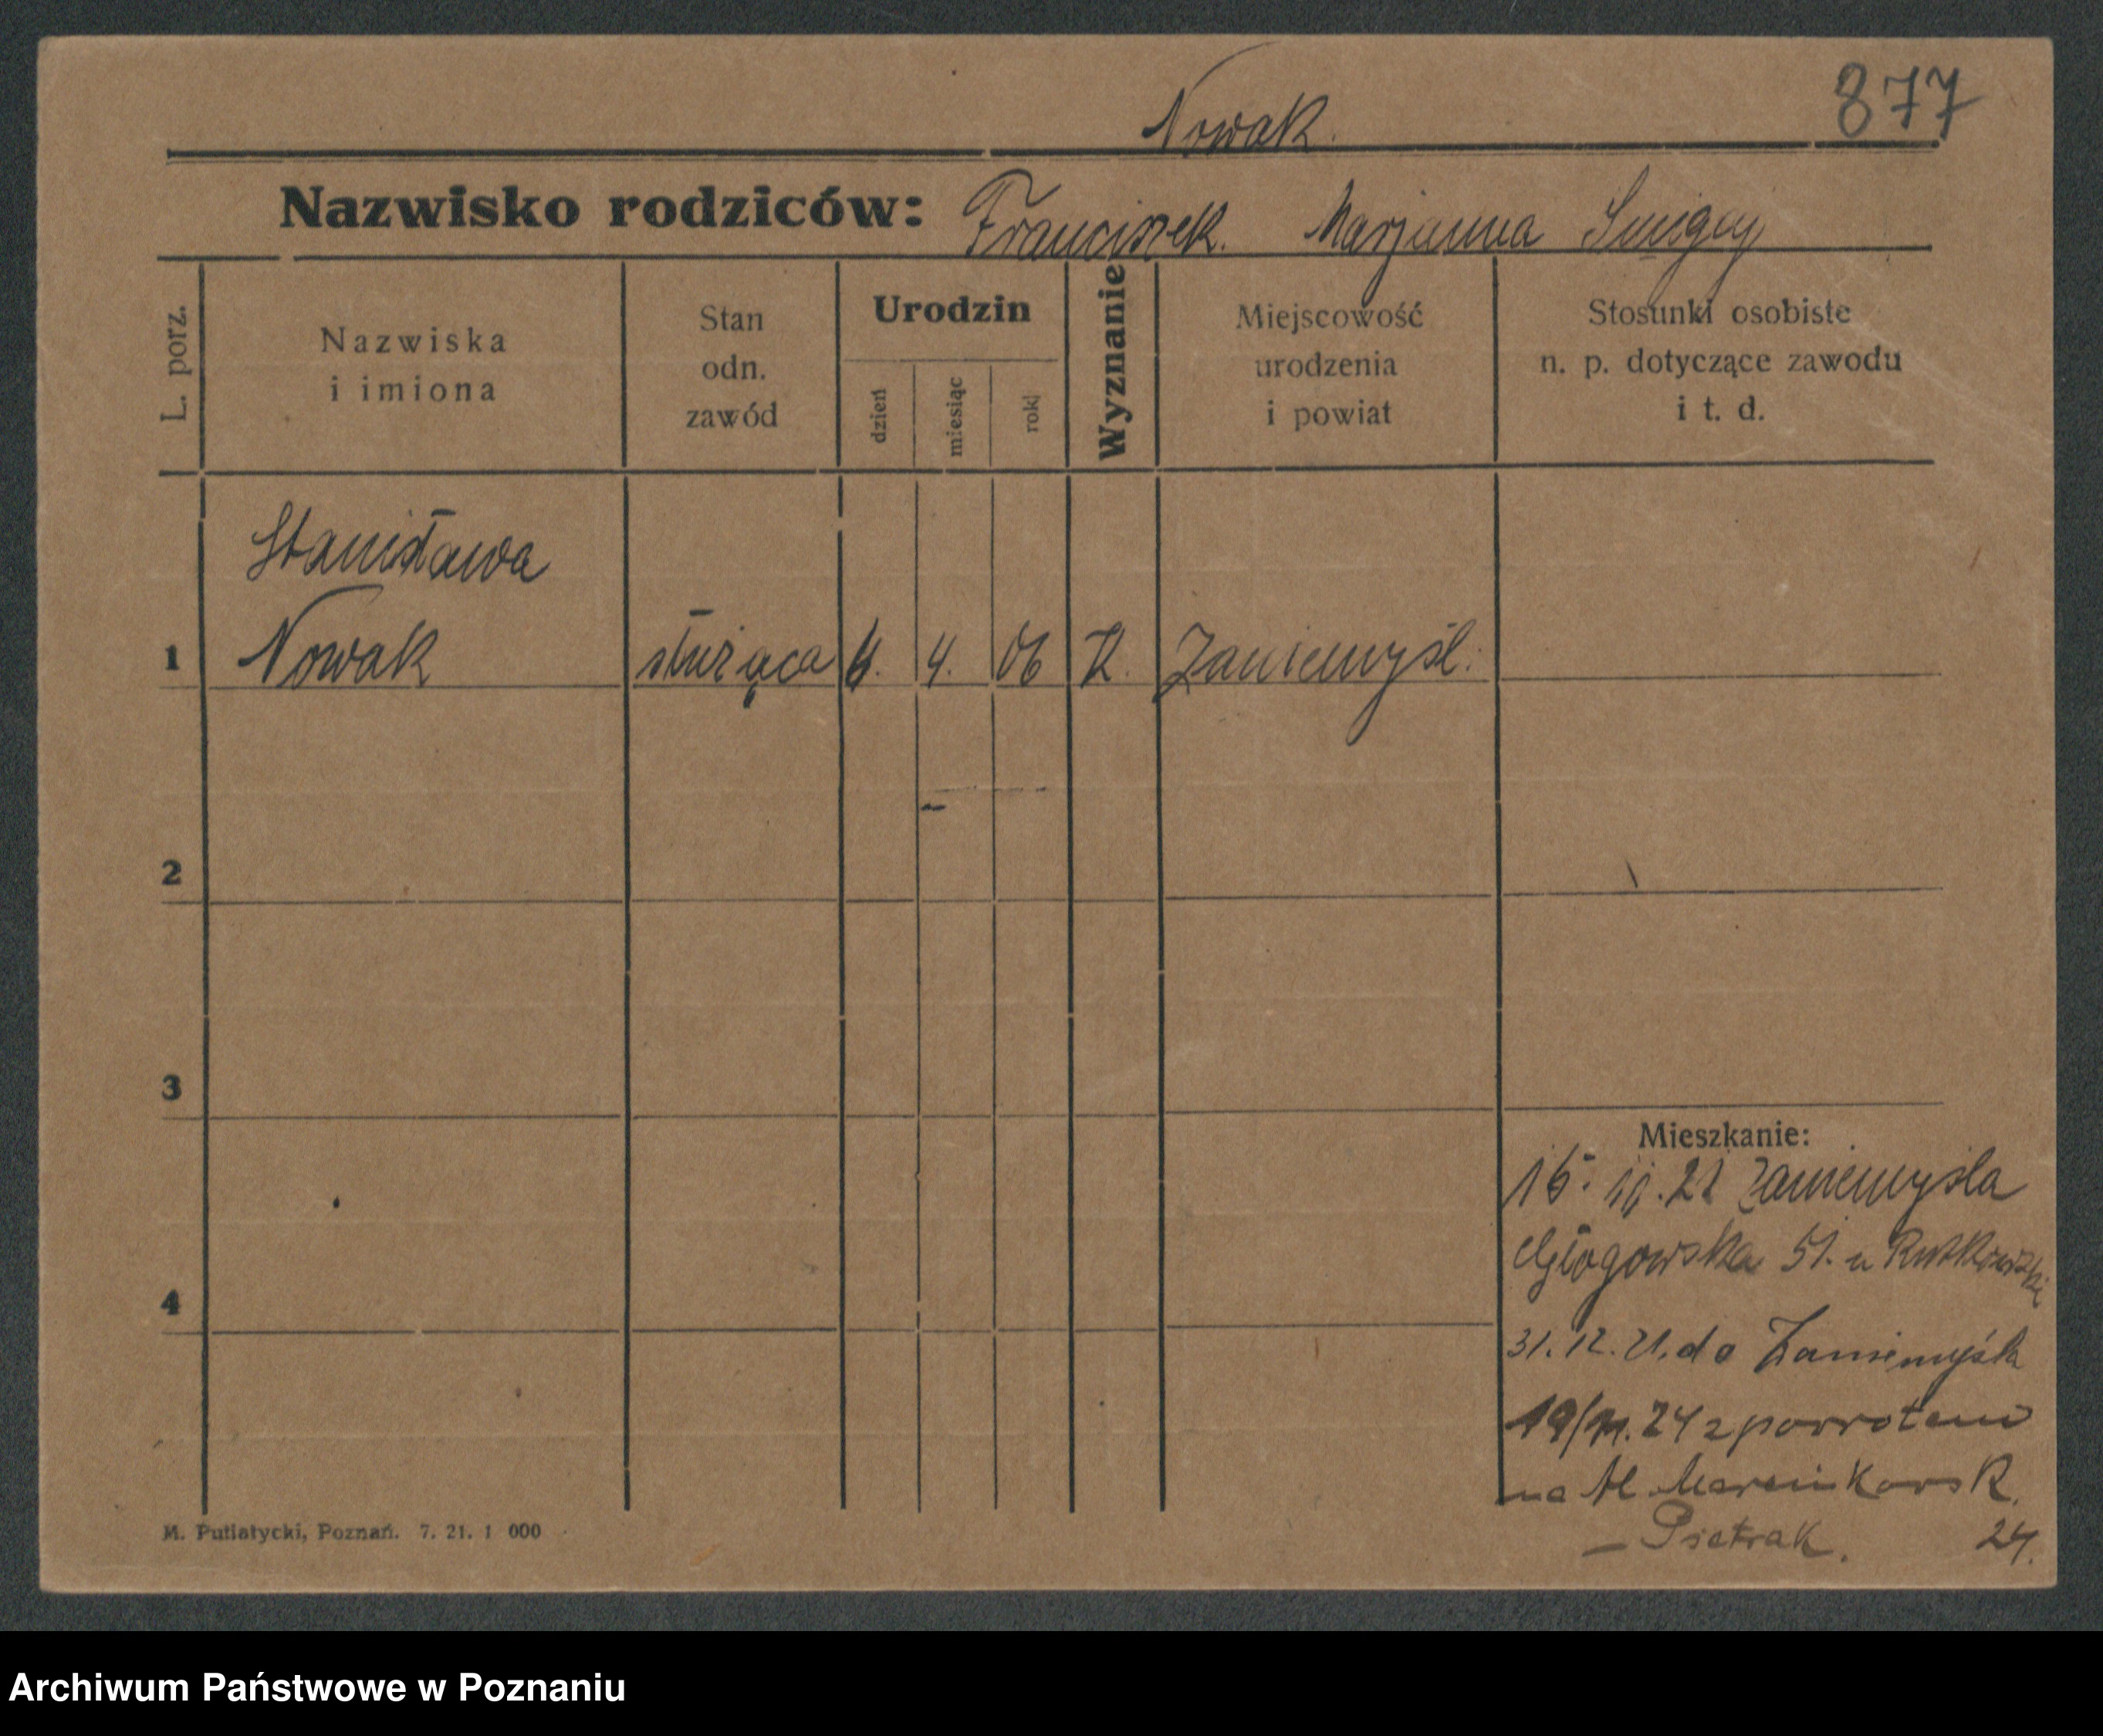 877
Nowak.
Nazwisko rodziców: Franciszek. Marjanna Śmigaj
L. porz.
Nazwiska
i imiona
Stan
odn.
zawód
Urodzin
dzień
miesiąc
rok
Wyznanie
Miejscowość
urodzenia
i powiat
Stosunki osobiste
n. p. dotyczące zawodu
i t. d.
Stanisława
1 Nowak służąca 4. 4. 06 K. Zaniemyśl.
2
3
4
Mieszkanie:
15. 10. 21 Zaniemyśla
Głogowska 51. u Rutkowski
31. 12. 21. do Zaniemyśla
19/11. 24 z powrotem
na Al Marcinkowsk.
– Pietrak. 24.
M. Putiatycki, Poznań. 7. 21. 1 000
Archiwum Państwowe w Poznaniu